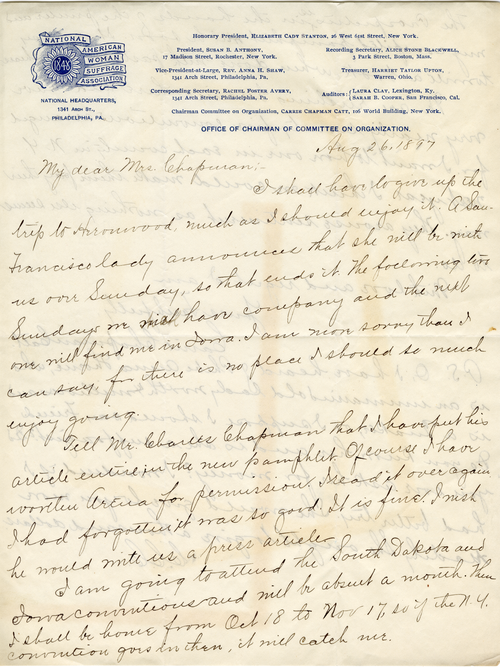 NATIONAL
AMERICAN
WOMAN
SUFFRAGE
ASSOCIATION
1848
NATIONAL HEADQUARTERS,
1341 ARCH ST.,
PHILADELPHIA, PA.
Honorary President, ELIZABETH CADY STANTON, 26 West 61st Street, New York.
President, SUSAN B. ANTHONY,
17 Madison Street, Rochester, New York.
Vice-President-at-Large, REV. ANNA H. SHAW,
1341 Arch Street, Philadelphia, Pa.
Corresponding Secretary, RACHEL FOSTER AVERY,
1341 Arch Street, Philadelphia, Pa.
Recording Secretary, ALICE STONE BLACKWELL,
3 Park Street, Boston, Mass.
Treasurer, HARRIET TAYLOR UPTON,
Warren, Ohio.
Auditors: LAURA CLAY, Lexington, Ky.
SARAH B. COOPER, San Francisco, Cal.
Chairman Committee on Organization, CARRIE CHAPMAN CATT, 106 World Building, New York.
OFFICE OF CHAIRMAN OF COMMITTEE ON ORGANIZATION.
Aug 26, 1897
My dear Mrs. Chapman;-
I shall have to give up the
trip to , much as I should enjoy it. A San-
Francisco lady announces that she will be with
us over Sunday, so that ends it. The following two
Sundays we have company and the next
one will find me in Iowa. I am more sorry than I
can say, for there is no place I should so much
enjoy going.
Tell Mr. Charles Chapman that I have put his
article entire in the new pamphlet. Of course I have
written Arena for permission. I read it over again
I had forgotten it was so good. It is fine. I wish
he would write us a press article.
I am going to attend the South Dakota and
Iowa conventions and will be absent a month. Then
I shall be home from Oct 18 to Nov 17, so if the N.Y.
convention goes in then, it will catch me.